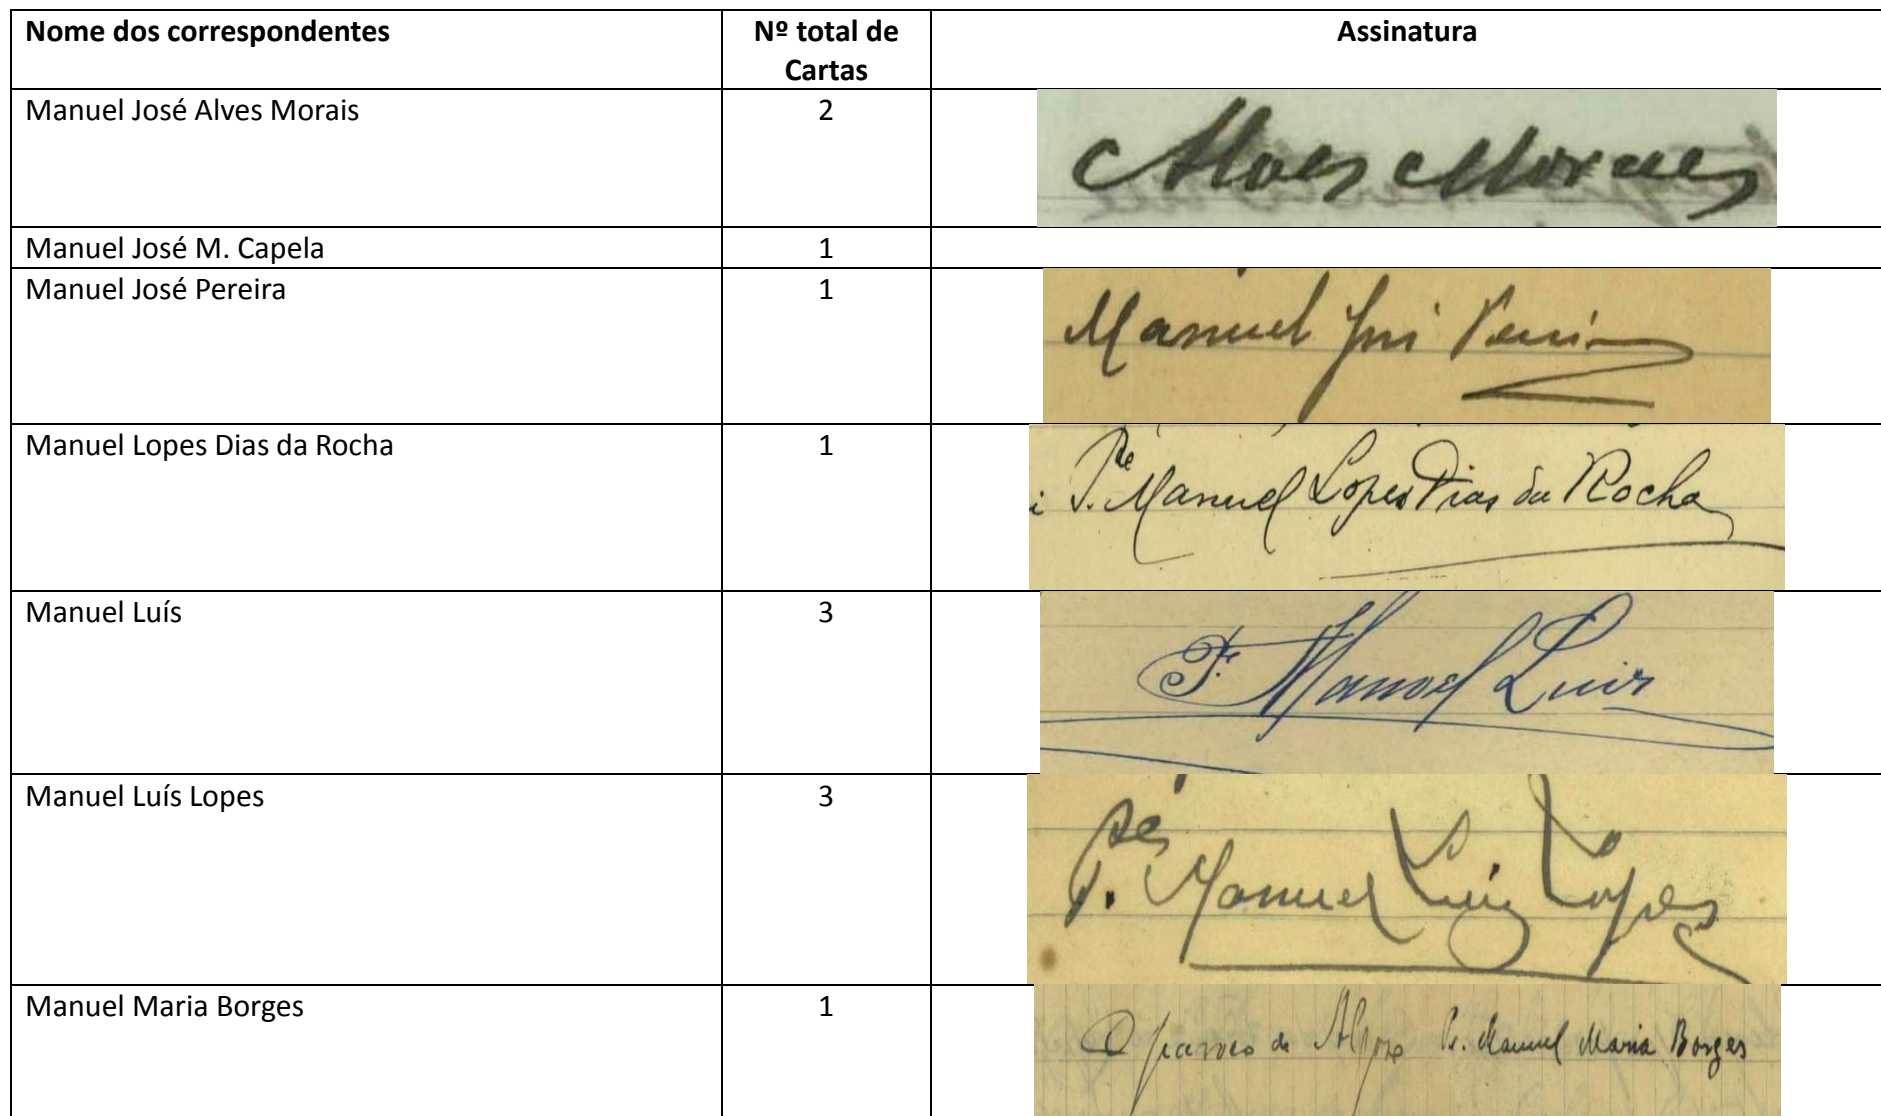 Nome dos correspondentes Nº total de Cartas Assinatura
Manuel José Alves Morais 2 Alves Moraes
Manuel José M. Capela 1
Manuel José Pereira 1 Manuel José Pereira
Manuel Lopes Dias da Rocha 1 P.de Manuel Lopes Dias da Rocha
Manuel Luís 3 P.e Manoel Luis
Manuel Luís Lopes 3 Manuel Luiz Lopes
Manuel Maria Borges 1 O Parocho de P.e Manuel Maria Borges